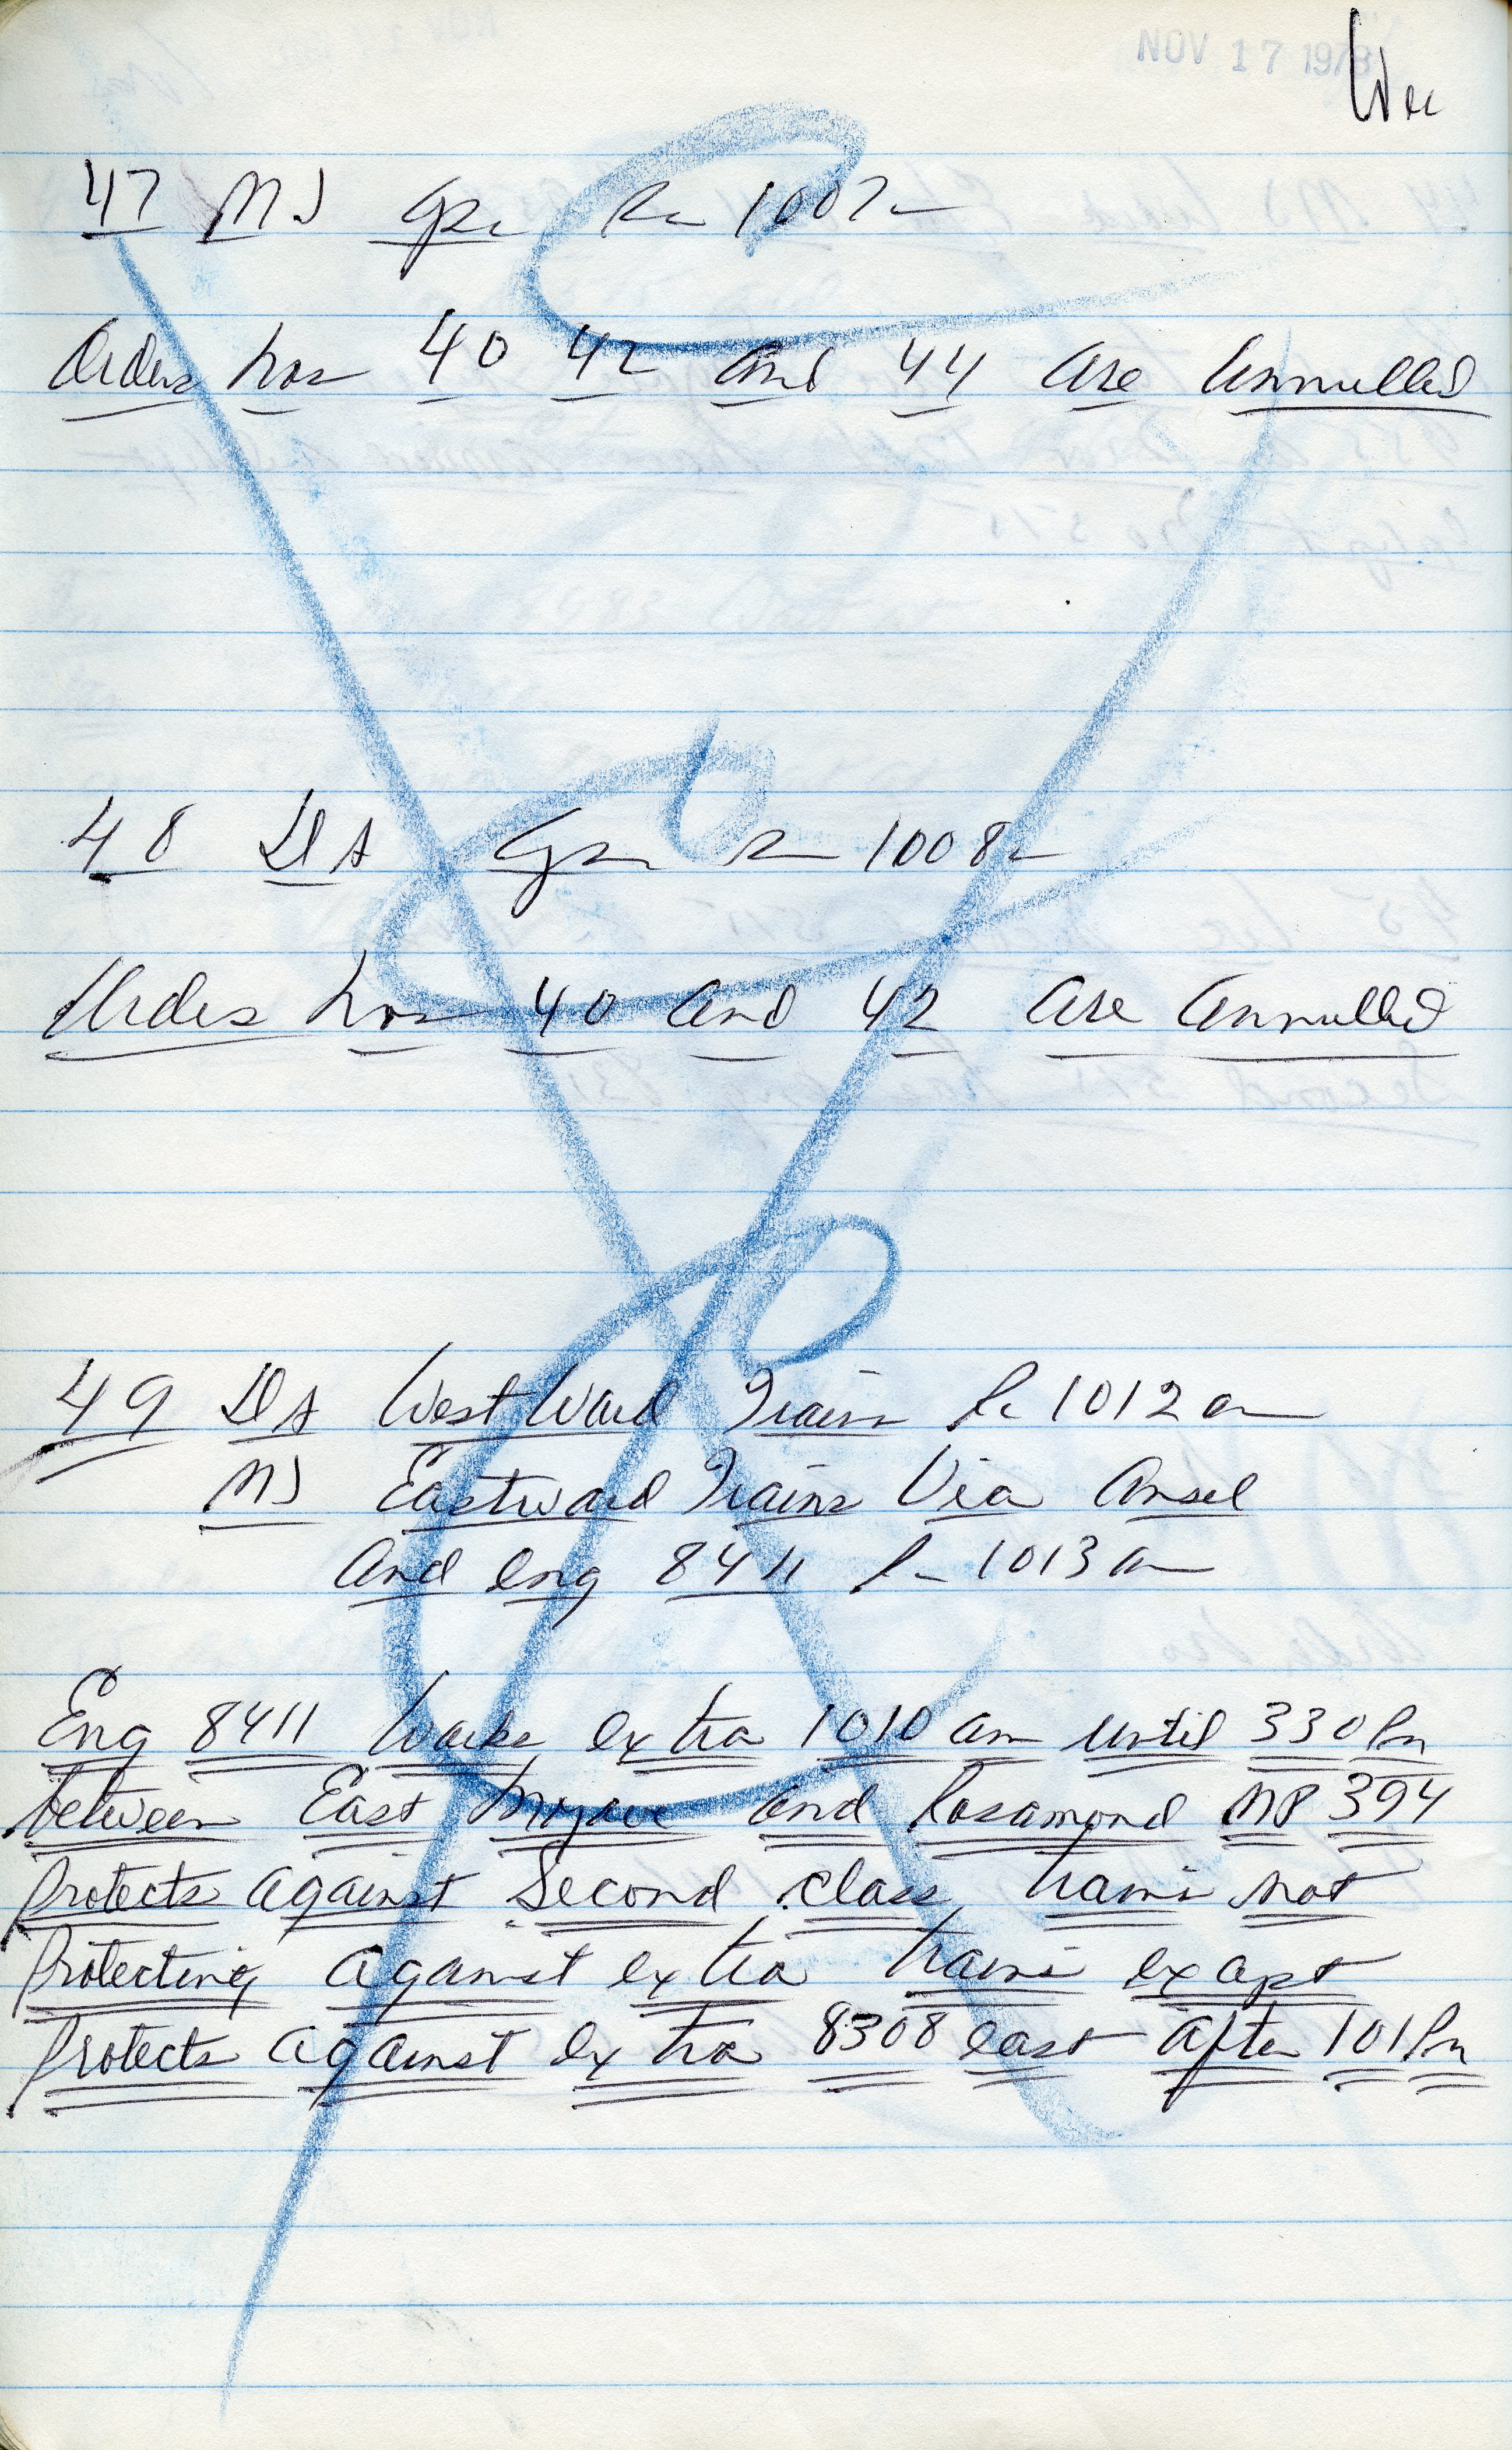 NOV 17 1978
47 MJ Opr 1007
Orders Nos 40 42 and 44 are annulled
48 DA Opr 1008
Orders Nos 40 and 42 are annulled
49 DA Westward Trains 1012 am
MJ Eastward Trains Via Ansel
and Eng 8411 1013 am
Eng 8411 Works extra 1010 am until 330 Pm
between East Mojave and Rosamond MP 394
Protects against Second class trains not
Protecting against extra trains except
Protects against extra 8308 east after 101 Pm